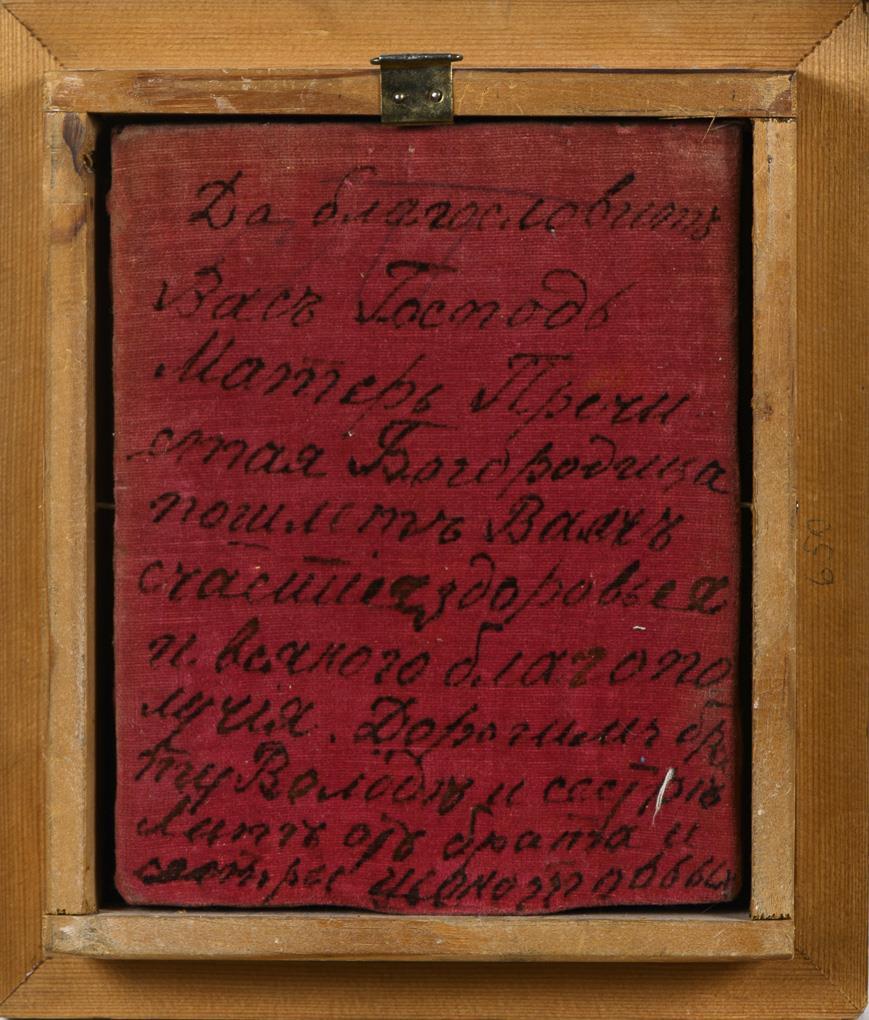 Да благословитъ
Васъ Господь
Матерь Пречи
стая Богородица
пошлетъ Вамъ
счастіе здоровье
и всякого благопо
лучія. Дорогимъ бра
ту Володѣ и сестрѣ
отъ брата и
сестры
650